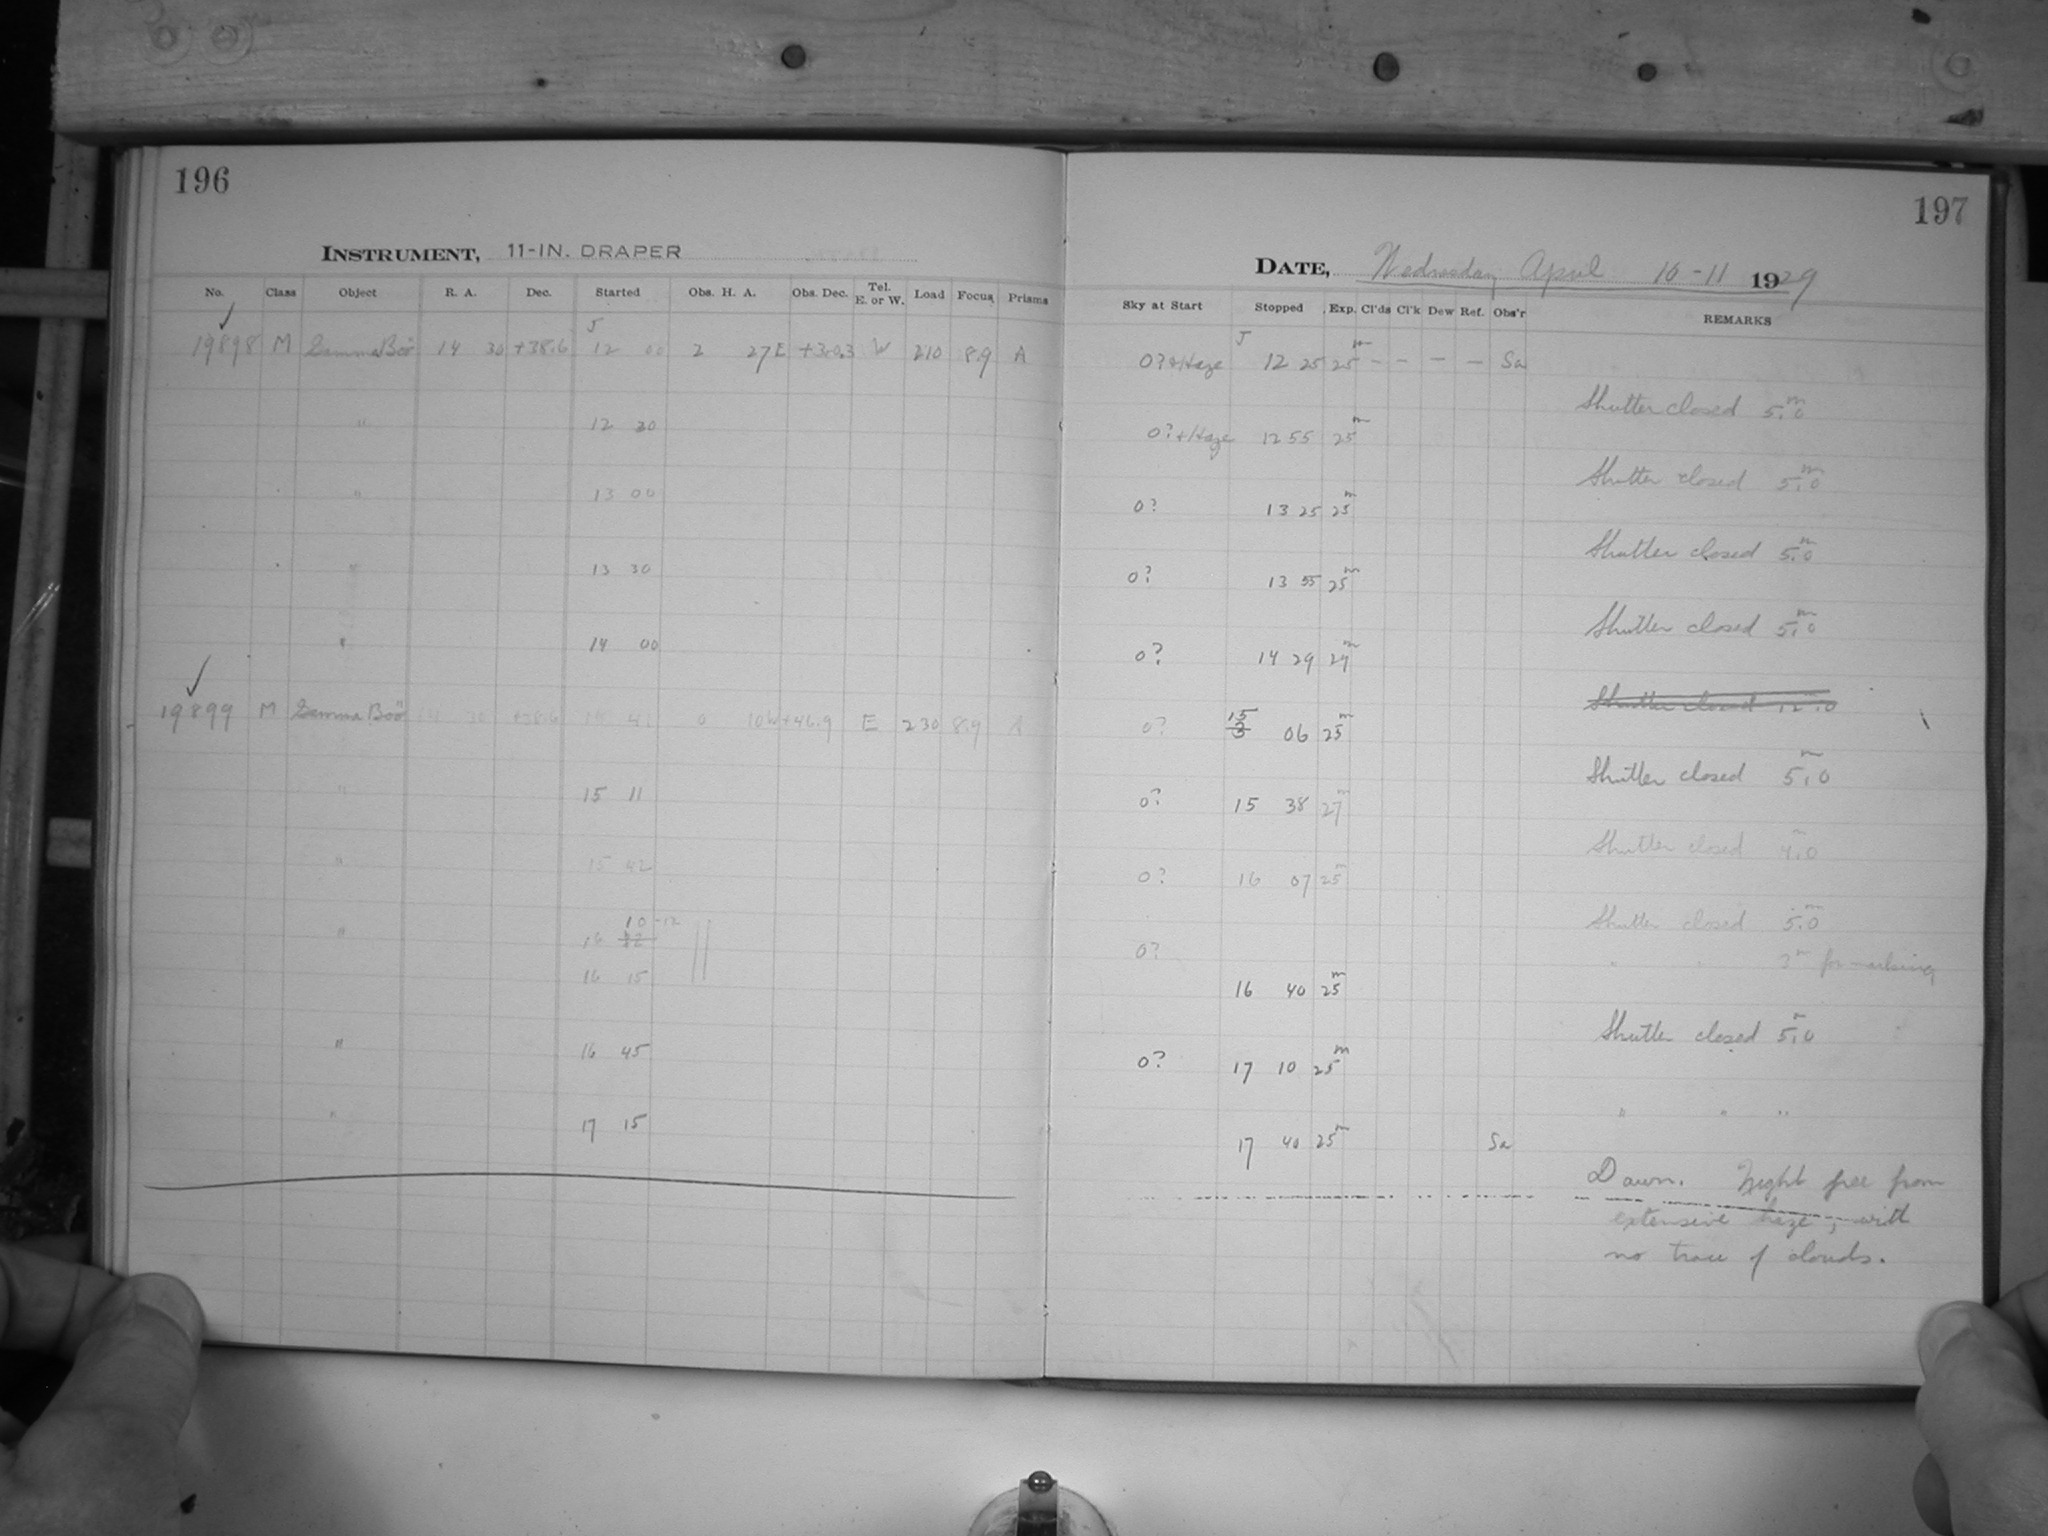 196
INSTRUMENT, 11-IN. DRAPER
No. Class Object R. A. Dec. Started Obs. H. A. Obs. Dec. Tel. E. or W. Load Focus Prisms
J
19898 M Gamma Boö 14 30 +38.6 12 00 2 27 E W 210 8.9 A
" 12 30
" 13 00
" 13 30
" 14 00
19899 M Gamma Boö 14 30 +38.6 14 41 0 10 W +46.9 E 230 8.9 A
" 15 11
" 15 42
10-12
" 16 12
16 15
" 16 45
" 17 15
197
DATE, Wednesday April 10-11 1929
Sky at Start Stopped Exp. Cl'ds Cl'k Dew Ref. Obs'r REMARKS
J
0?+Haze 12 25 25m – – – – Sa
Shutter closed 5m.0
0?+Haze 12 55 25m
Shutter closed 5m.0
0? 13 25 25m
Shutter closed 5m.0
0? 13 55 25m
Shutter closed 5m.0
0? 14 29 29m
Shutter closed 12.0
15
0? 3 06 25m
Shutter closed 5m.0
0? 15 38 27m
Shutter closed 4m.0
0? 16 07 25m
Shutter closed 5m.0
0? " " 3m for marking
16 40 25m
Shutter closed 5m.0
0? 17 10 25m
" " "
17 40 25m Sa
Dawn. Night free from
extensive haze, with
no trace of clouds.